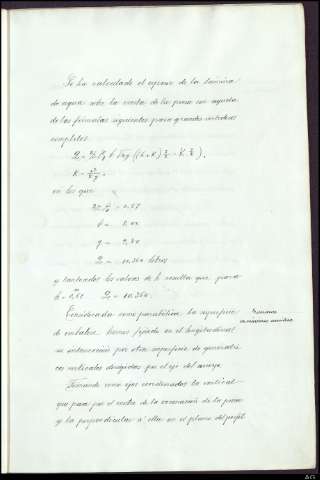 Se ha calculado el espesor de la lámina
de agua sobre la cresta de la presa con ayuda
de las fórmulas siguientes para grandes vertederos
completos
Q = 2/3 b √2g ((h+K) 3/2 - K 3/2),
K =
en las que
= 0.57
b =
g = 9,80
Q = 10.360 litros
y tanteados los valores de h resulta que para
h = 0,65 Q = 10.360.
Considerada como parabólica la superficie
de embalse, hemos fijado en el longitudinal
su intersección por otra superficie de generatri-
ces verticales dirigidas por el eje del cauce.
Remanso
Tomando como ejes coordenados la vertical
que pasa por el centro de la coronación de la presa
y la perpendicular a ella en el plano del perfil